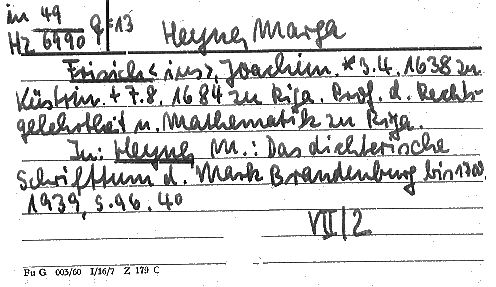 in 49
Hz 6990 q:13 Heyne, Marga
Frisich<ius>, Joachim. *3.4.1638 zu
Küstrin. + 7.8.1684 zu Riga. Prof. d. Rechts-
gelehrtheit u. Mathematik zu Riga.
In: Heyne, M.: Das dichterische
Schrifttum d. Mark Brandenburg bis 1700,
1939, S. 96. 40
VII/2
Pu G 003/60 I/16/7 Z 179 C